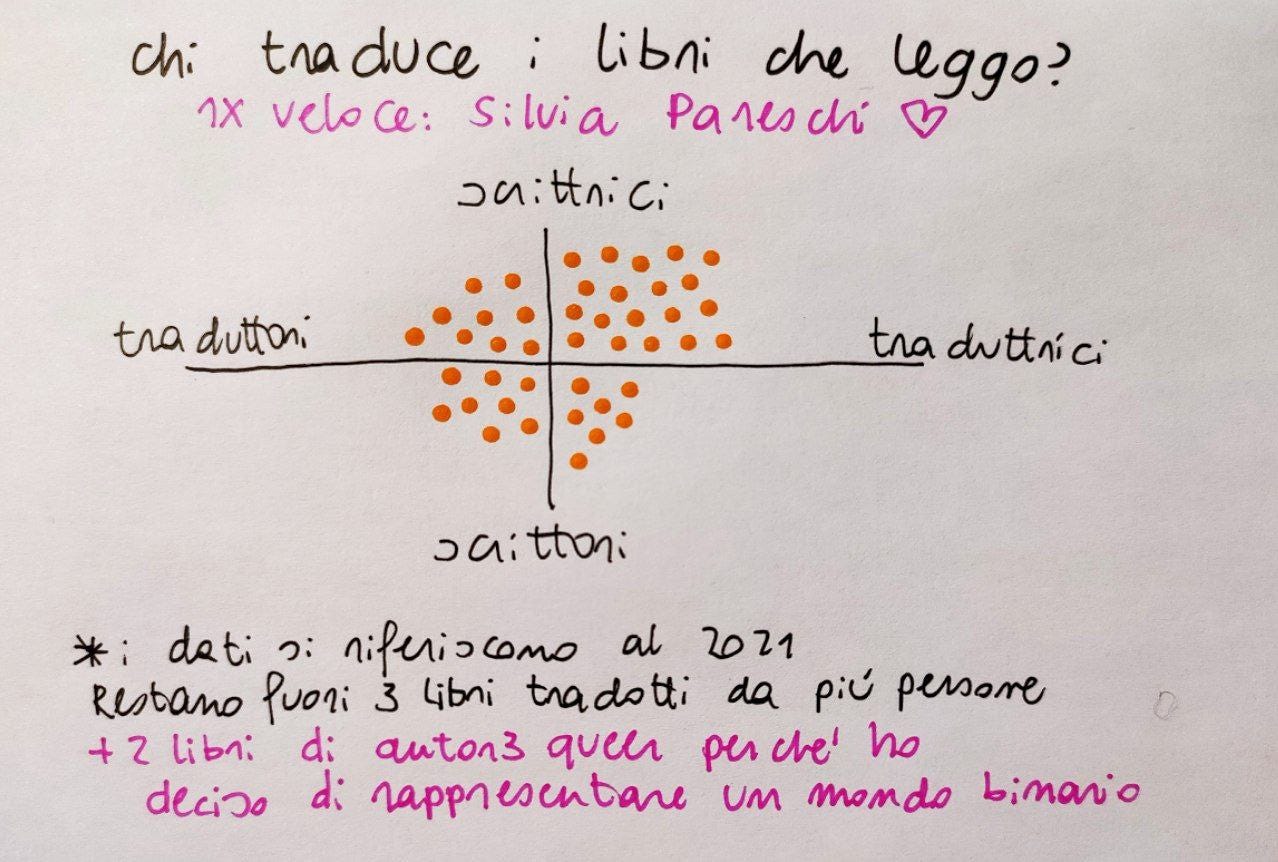 chi traduce i libri che leggo?
1x veloce: Silvia Pareschi ♡
scrittrici
traduttori
traduttrici
scrittori
*i dati si riferiscono al 2021
Restano fuori 3 libri tradotti da più persone
+ 2 libri di autorɜ queer perché ho
deciso di rappresentare un mondo binario